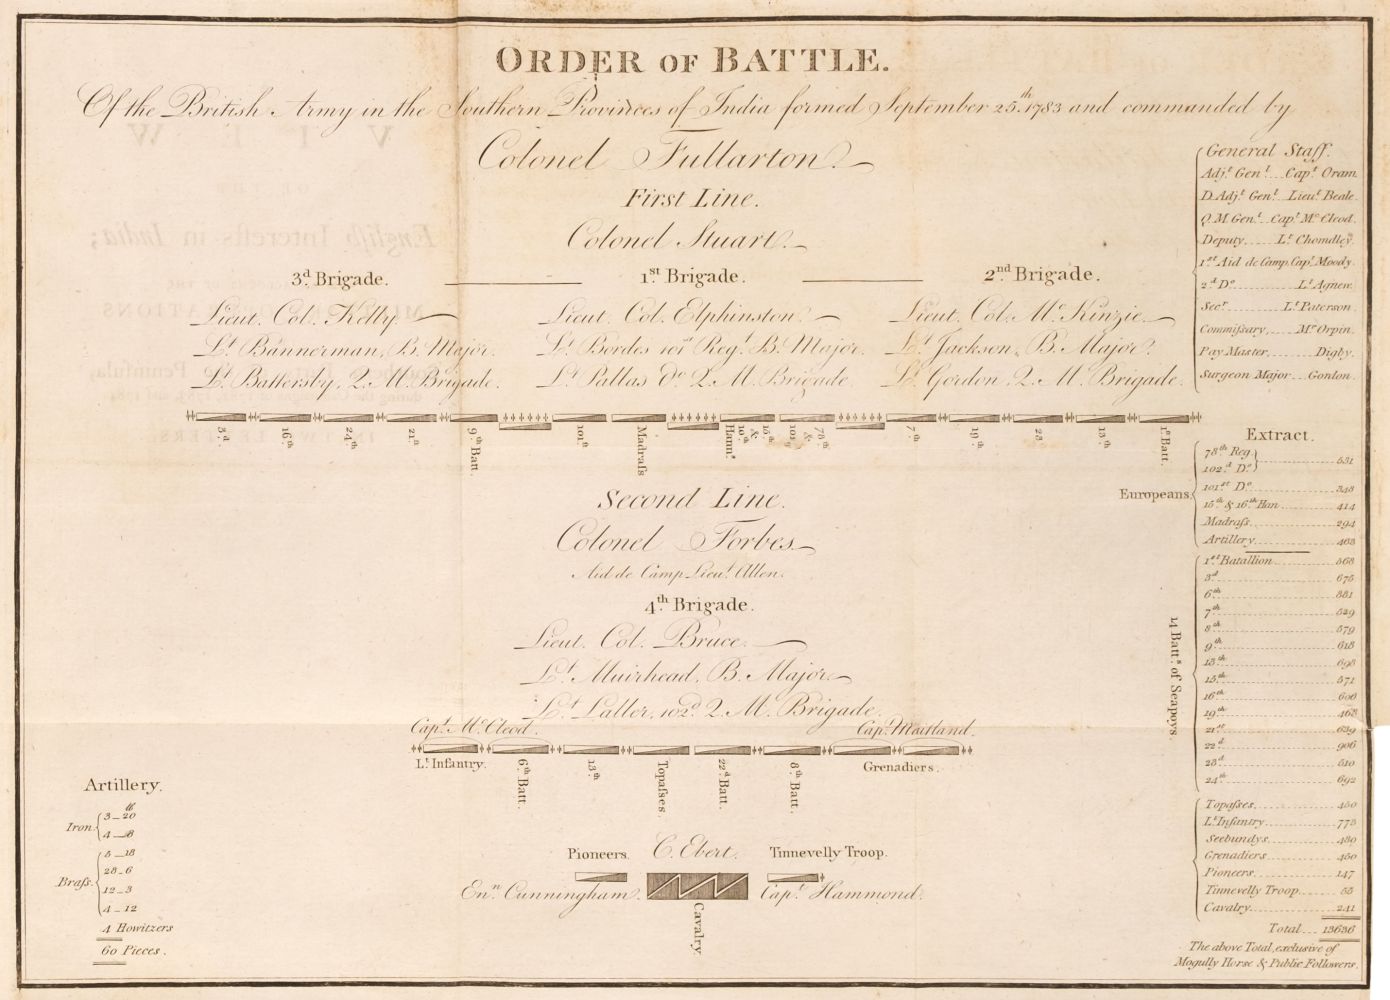 ORDER OF BATTLE.
Of the British Army in the Southern Provinces of India formed September 25.th 1783 and commanded by
Colonel Fullarton.
First Line.
Colonel Stuart.
3.d Brigade.
1.st Brigade.
2.nd Brigade.
Lieut. Col. Kelly.
Lieut. Col. Elphinston
Lieut. Col. Mc. Kinzie
L.t Bannerman, B. Major.
L.t Bordes 101st Reg.t B. Major.
L.t Jackson, B. Major.
L.t Battersby, Q. M. Brigade.
L.t Pallas do. Q. M. Brigade.
L.t Gordon, Q. M. Brigade.
3.d
16.th
24.th
21.st
9.th Batt.
101.st
Madraſs
15.th & 16.th Hann.s
78.th &
7.th
19.th
23
13.th
1.st Batt.
Second Line.
Colonel Forbes
Aid de Camp Lieu.t Allen.
4.th Brigade.
Lieut. Col. Bruce
L.t Muirhead, B. Major.
L.t Laller, 102.d Q. M. Brigade.
Cap.t Mc. Cleod.
Cap.t Maitland.
L.t Infantry.
6.th Batt.
13.th
Topaſses.
22.d Batt.
8.th Batt.
Grenadiers.
Pioneers.
C. Ebert.
Tinnevelly Troop.
En.n Cunningham.
Cap.t Hammond.
Cavalry.
Artillery.
lb
Iron
3 _ 20
4 _ 8
Braſs.
5 _ 18
28 _ 6
12 _ 3
4 _ 12
4 Howitzers
60 Pieces.
General Staff.
Adj.t Gen.l Cap.t Oram.
D. Adj.t Gen.l Lieu.t Beale.
Q. M. Gen.l Cap.t Mc. Cleod.
Deputy L.t Chomdley.
1.st Aid de Camp. Cap.t Moody.
2.d Do L.t Agnew.
Sec.r L.t Paterson.
Commiſsary, Mr. Orpin.
Pay Master Digby.
Surgeon Major Gordon.
Extract.
Europeans
78.th Reg.
102.d Do. 531
101.st Do. 348
15.th & 16.th Han 414
Madraſs 294
Artillery 463
14 Batt.s of Seapoys.
1.st Batallion 568
3.d 675
6.th 581
7.th 529
8.th 579
9.th 618
13.th 698
15.th 571
16.th 606
19.th 468
21.st 639
22.d 906
23.d 510
24.th 692
Topaſses 450
L.t Infantry 773
Seebundys 480
Grenadiers 450
Pioneers 147
Tinnevelly Troop 55
Cavalry 241
Total 13636
The above Total, exclusive of
Mogully Horse & Public Followers.